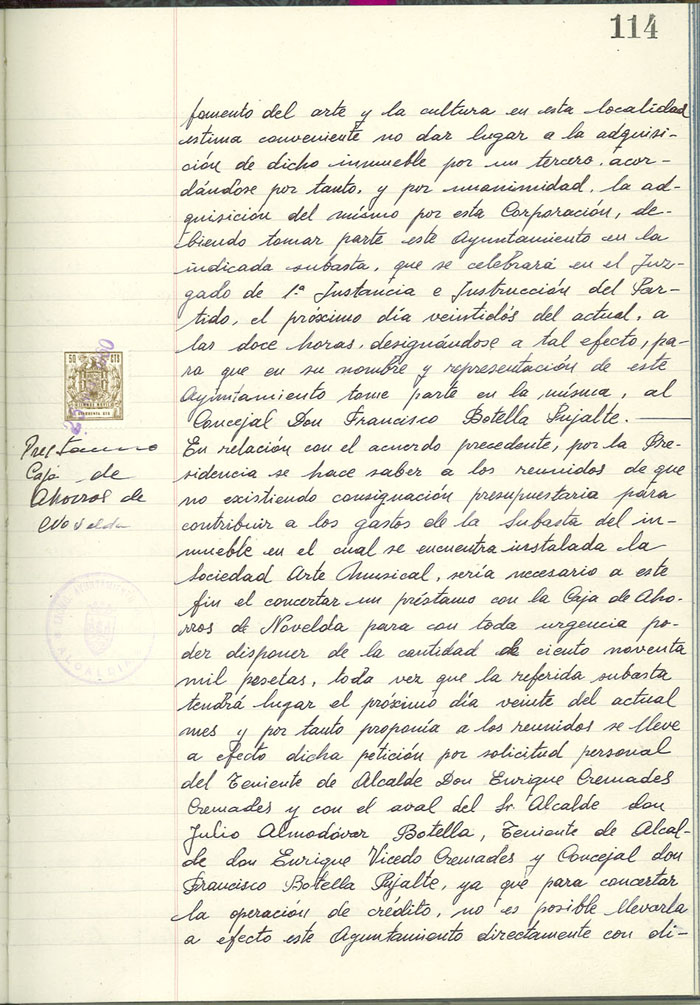 114
fomento del arte y la cultura en esta localidad
estima conveniente no dar lugar a la adquisi-
ción de dicho inmueble por un tercero, acor-
dándose por tanto, y por unanimidad, la ad-
quisición del mismo por esta Corporación, de-
biendo tomar parte este Ayuntamiento en la
indicada subasta, que se celebrará en el Juz-
gado de 1.ª Instancia e Instrucción del Par-
tido, el próximo día veintidós del actual, a
las doce horas, designándose a tal efecto, pa-
ra que en su nombre y representación de este
Ayuntamiento tome parte en la misma, al
Concejal Don Francisco Botella Pujalte.
50 CTS
Prestamo
Caja de
Ahorros de
Novelda
En relación con el acuerdo precedente, por la Pre-
sidencia se hace saber a los reunidos de que
no existiendo consignación presupuestaria para
contribuir a los gastos de la Subasta del in-
mueble en el cual se encuentra instalada la
Sociedad Arte Musical, sería necesario a este
fin el concertar un préstamo con la Caja de Aho-
rros de Novelda para con toda urgencia po-
der disponer de la cantidad de ciento noventa
mil pesetas, toda vez que la referida subasta
tendrá lugar el próximo día veinte del actual
mes y por tanto proponía a los reunidos se lleve
a efecto dicha petición por solicitud personal
del Teniente de Alcalde Don Enrique Cremades
Cremades y con el aval del Sr. Alcalde don
Julio Almodóvar Botella, Teniente de Alcal-
de don Enrique Vicedo Cremades y Concejal don
Francisco Botella Pujalte, ya que para concertar
la operación de crédito, no es posible llevarla
a efecto este Ayuntamiento directamente con di-
ALCALDIA